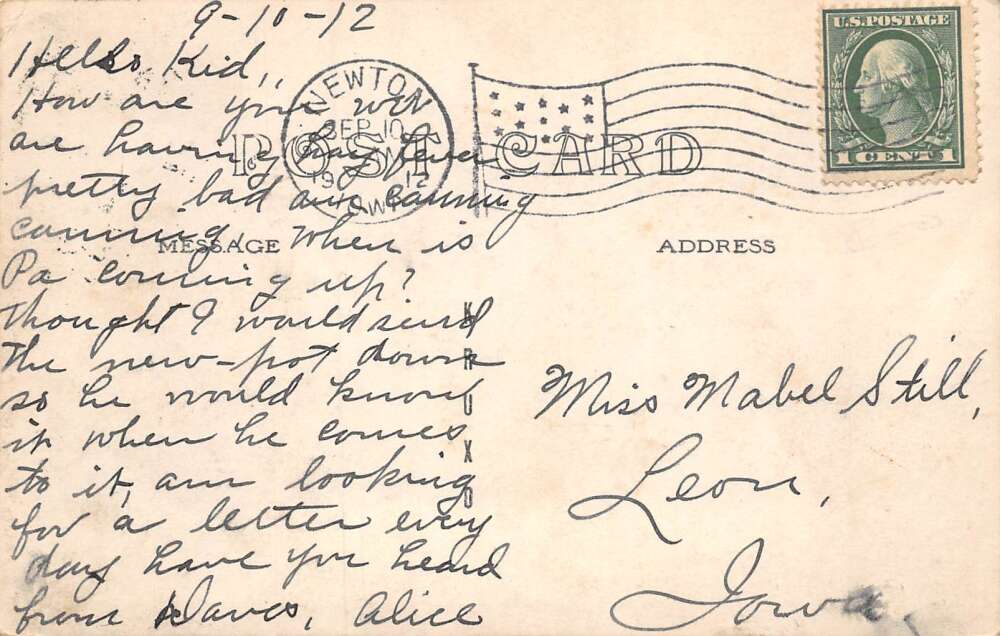 9-10-12
Hello Kid,,
How are you? we
are having hay fever
pretty bad and canning
canning, When is
Pa coming up?
Thought I would send
the new-pot down
so he would know
it when he comes
to it, am looking
for a letter every
day have you heard
from Daves, Alice
NEWTON
SEP 10
M
1912
IOWA
U.S. POSTAGE
1 CENT 1
POST CARD
MESSAGE
ADDRESS
Miss Mabel Still,
Leon,
Iowa.